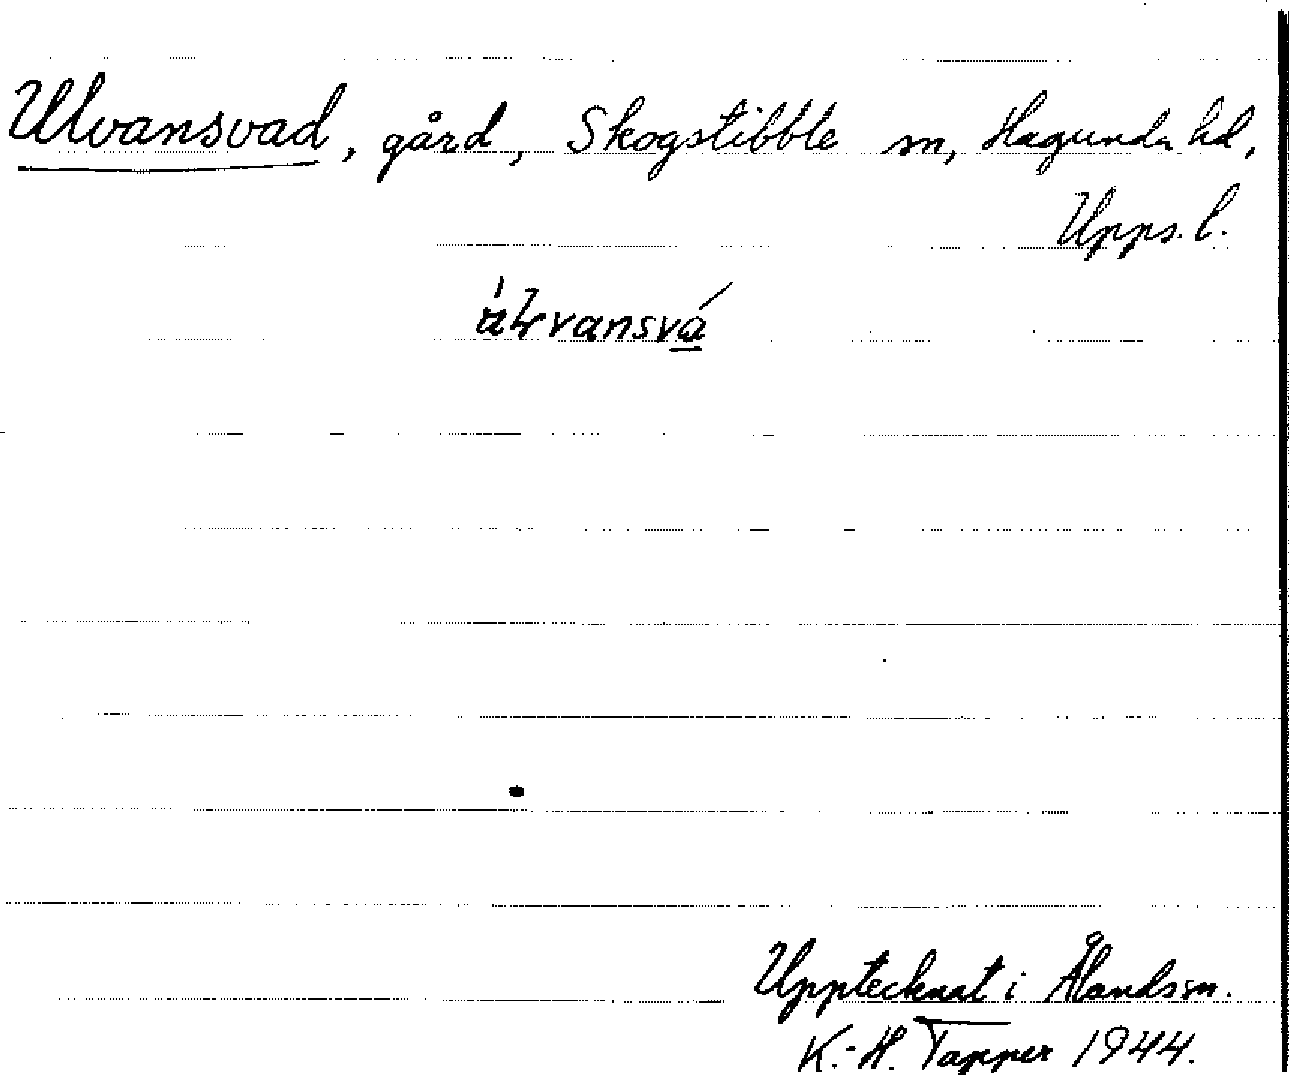 Ulvansvad, gård, Skogstibble sn, Hagunda hd,
Upps. l.
Upptecknat i Ålands sn.
K.-H. Tapper 1944.